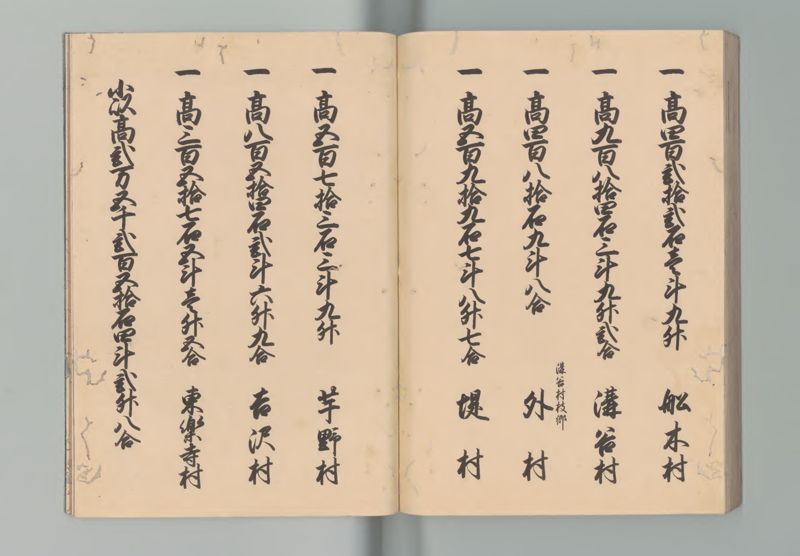 一 高四百弐拾弐石壱斗九升 船木村
一 高九百八拾四石三斗九升弐合 溝谷村
溝谷村枝郷
一 高四百八拾石九斗八合 外村
一 高五百九拾九石七斗八升七合 堤村
一 高五百七拾三石三斗九升 芋野村
一 高八百五拾四石弐斗六升九合 吉沢村
一 高三百五拾七石五斗壱升五合 東楽寺村
小以高弐万五千弐百五拾石四斗弐升八合